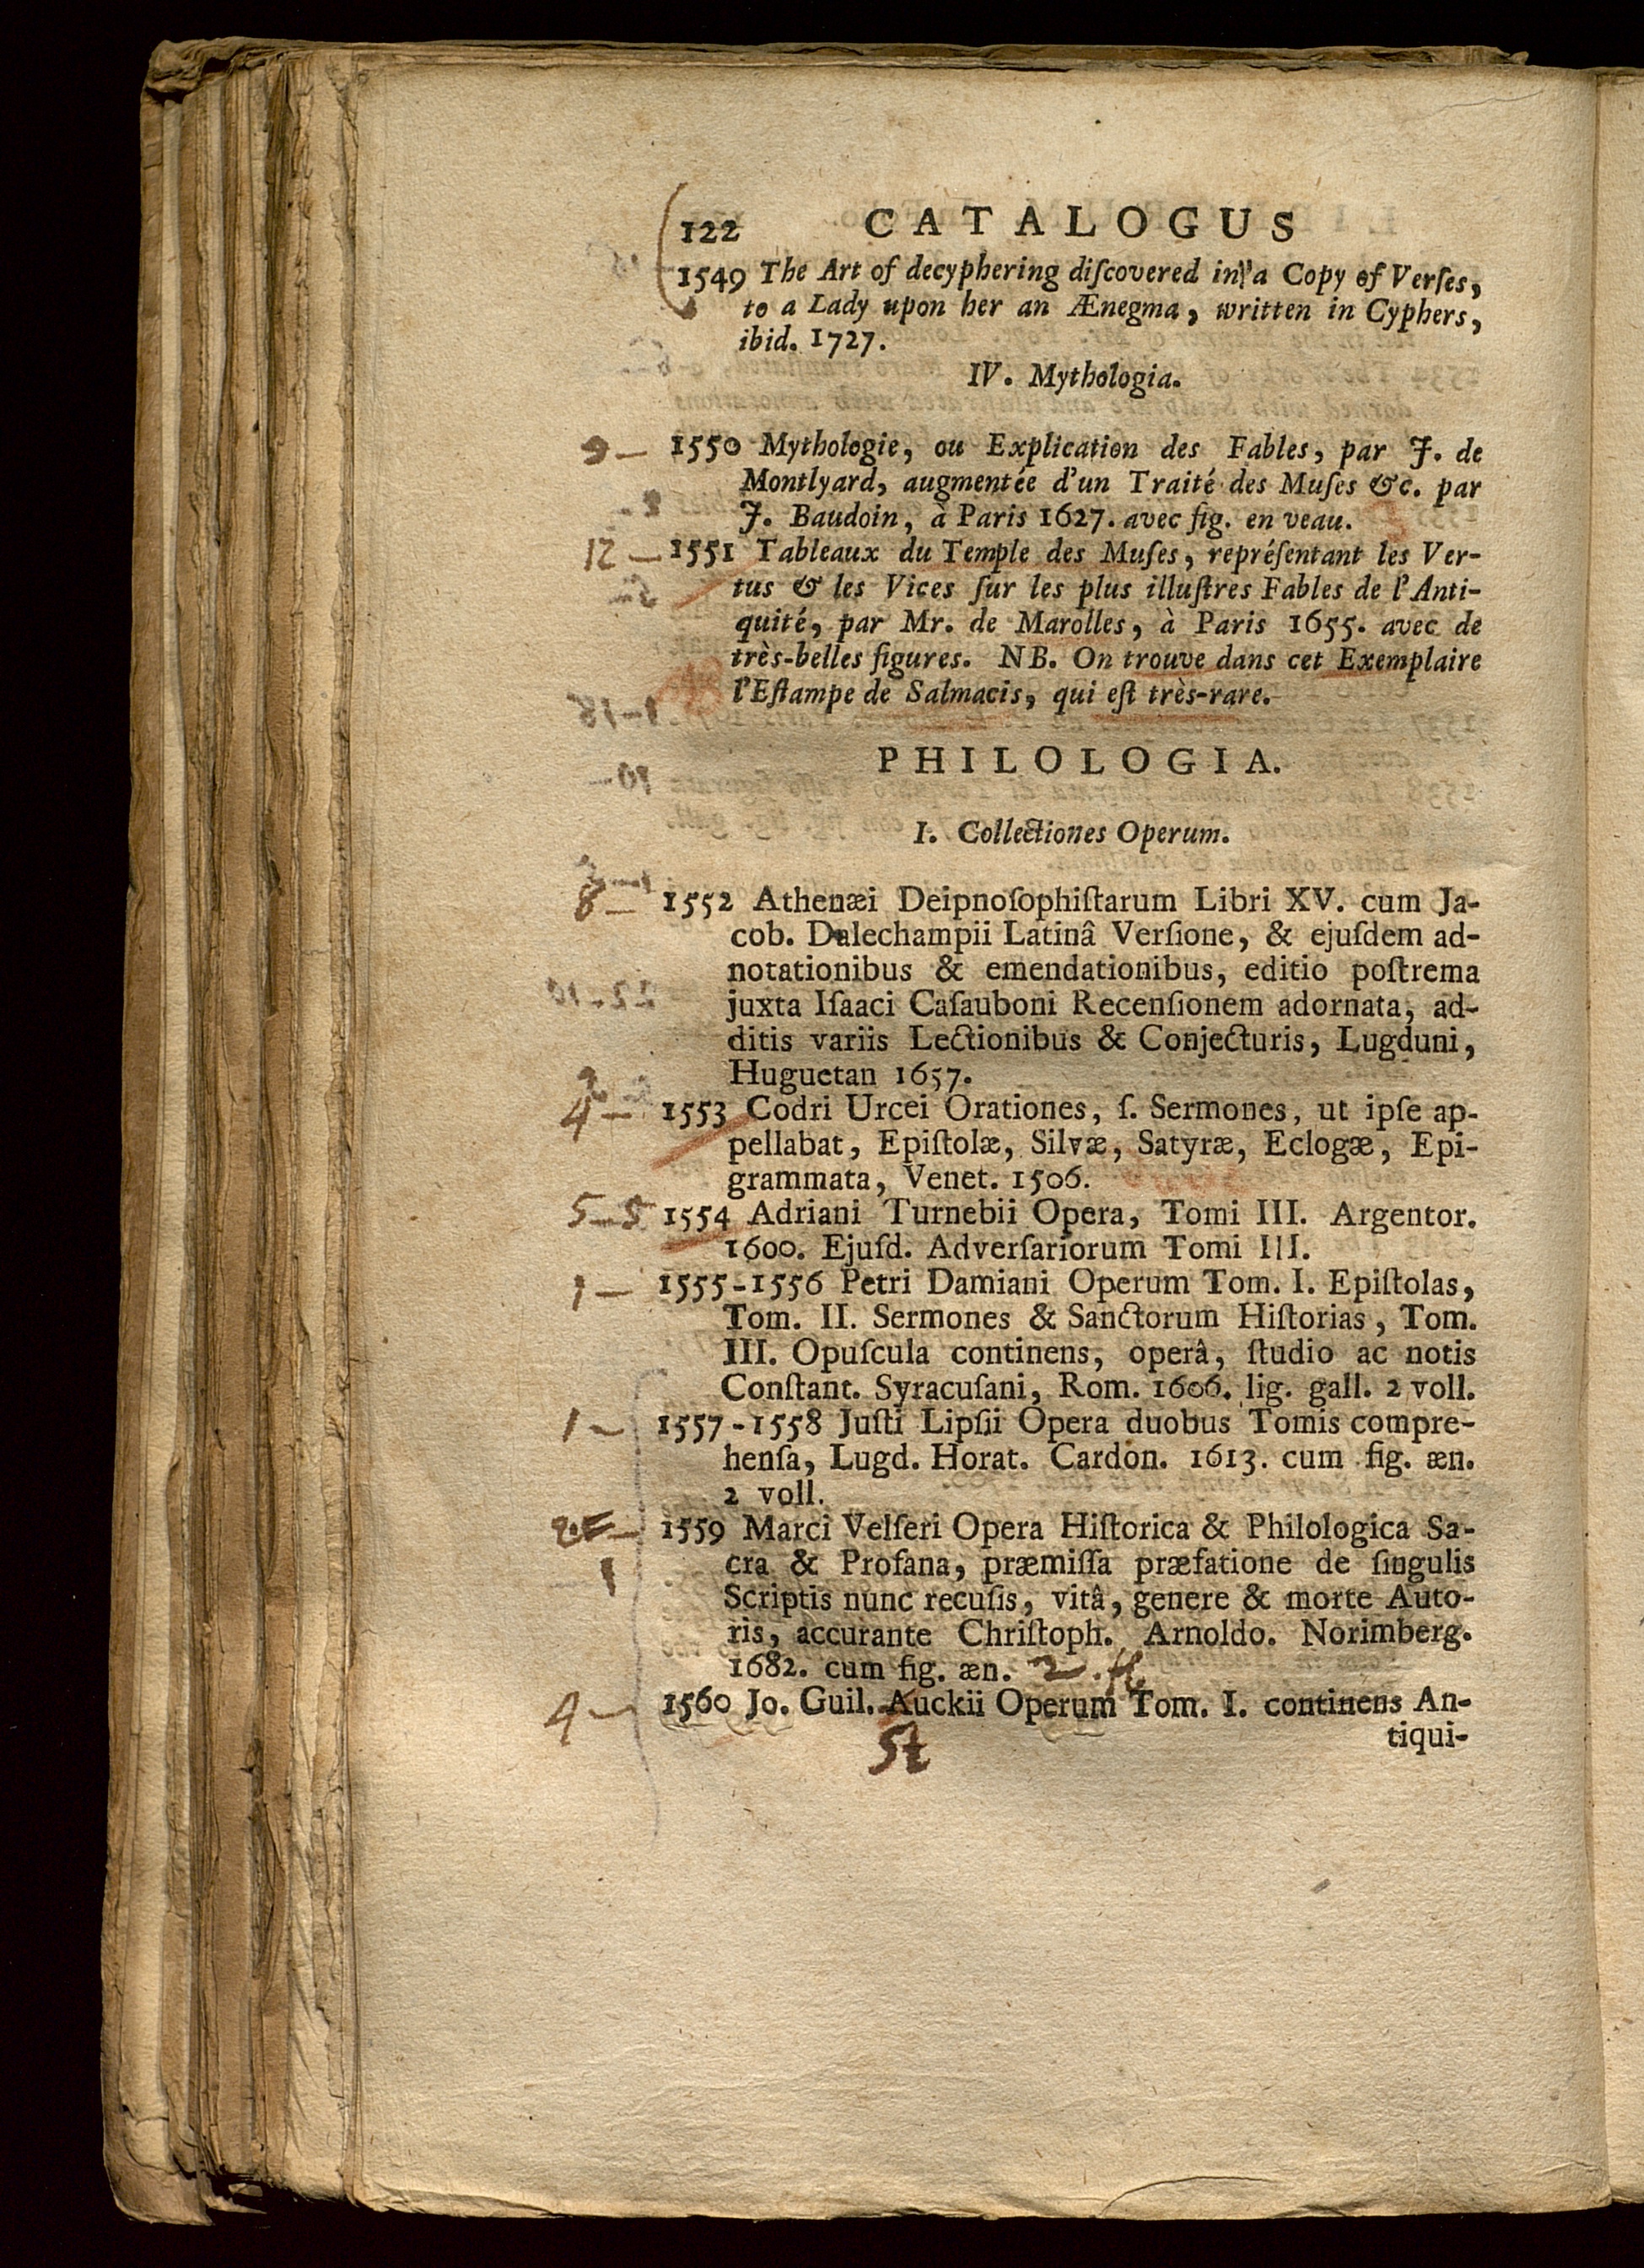 122 CATALOGUS
1549 The Art of decyphering diſcovered in a Copy of Verſes,
to a Lady upon her an Ænegma, written in Cyphers,
ibid. 1727.
IV. Mythologia.
9— 1550 Mythologie, ou Explication des Fables, par J. de
Montlyard, augmentée d'un Traité des Muſes &c. par
J. Baudoin, à Paris 1627. avec fig. en veau.
12— 1551 Tableaux du Temple des Muſes, repréſentant les Ver-
tus & les Vices ſur les plus illuſtres Fables de l'Anti-
quité, par Mr. de Marolles, à Paris 1655. avec de
très-belles figures. NB. On trouve dans cet Exemplaire
l'Eſtampe de Salmacis, qui eſt très-rare.
PHILOLOGIA.
I. Collectiones Operum.
8— 1552 Athenæi Deipnoſophiſtarum Libri XV. cum Ja-
cob. Dalechampii Latinâ Verſione, & ejuſdem ad-
notationibus & emendationibus, editio poſtrema
juxta Iſaaci Caſauboni Recenſionem adornata, ad-
ditis variis Lectionibus & Conjecturis, Lugduni,
Huguetan 1657.
4— 1553 Codri Urcei Orationes, ſ. Sermones, ut ipſe ap-
pellabat, Epiſtolæ, Silvæ, Satyræ, Eclogæ, Epi-
grammata, Venet. 1506.
5—5 1554 Adriani Turnebii Opera, Tomi III. Argentor.
1600. Ejuſd. Adverſariorum Tomi III.
1— 1555-1556 Petri Damiani Operum Tom. I. Epiſtolas,
Tom. II. Sermones & Sanctorum Hiſtorias, Tom.
III. Opuſcula continens, operâ, ſtudio ac notis
Conſtant. Syracuſani, Rom. 1606. lig. gall. 2 voll.
1— 1557-1558 Juſti Lipſii Opera duobus Tomis compre-
henſa, Lugd. Horat. Cardon. 1613. cum fig. æn.
2 voll.
1559 Marci Velſeri Opera Hiſtorica & Philologica Sa-
1 cra & Profana, præmiſſa præfatione de ſingulis
Scriptis nunc recuſis, vitâ, genere & morte Auto-
ris, accurante Chriſtoph. Arnoldo. Norimberg.
1682. cum fig. æn.
4— 1560 Jo. Guil. Auckii Operum Tom. I. continens An-
St
tiqui-